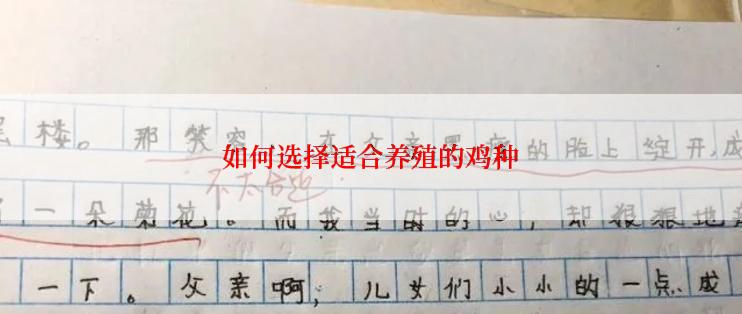 楼。那笑容,在父亲黑瘦的脸上绽开,成
如何选择适合养殖的鸡种
不太合适
一朵菊花。而我当时的心,却狠狠地
一下。父亲啊,儿女们小小的一点成